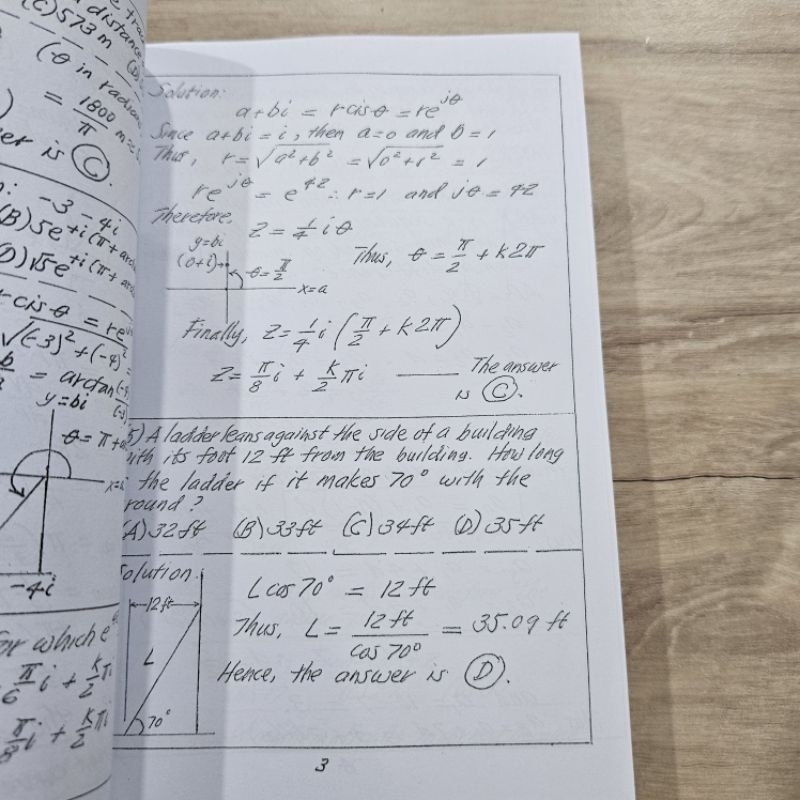 (C) 573 m (D)
distance
(θ in radian
= 1800/π m =
is (C).
-3 - 4i
(B) 5e^+i(π+ arc
(D) √5e^+i(π+ arc
r cis θ = re
√(-3)² + (-4)²
= arctan (-4)/(-3)
y = bi
θ = π +
x=a
-4i
For which e
π/6 i + k/2 πi
π/8 i + k/2 πi
Solution:
a+bi = r cis θ = re^jθ
Since a+bi = i, then a=0 and b = 1
Thus, r = √a²+b² = √0²+1² = 1
re^jθ = e^4z ∴ r=1 and jθ = 4z
Therefore, z = 1/4 iθ
y=bi
(0+i)
θ = π/2
x=a
Thus, θ = π/2 + k2π
Finally, z = 1/4 i (π/2 + k2π)
z = π/8 i + k/2 πi — The answer
is (C).
5) A ladder leans against the side of a building
with its foot 12 ft from the building. How long
the ladder if it makes 70° with the
round?
(A) 32 ft (B) 33 ft (C) 34 ft (D) 35 ft
Solution.
12 ft
L
70°
L cos 70° = 12 ft
Thus, L = 12 ft / cos 70° = 35.09 ft
Hence, the answer is (D).
3